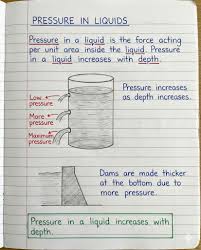 PRESSURE IN LIQUIDS
Pressure in a liquid is the force acting
per unit area inside the liquid. Pressure
in a liquid increases with depth.
Low
pressure
More
pressure
Maximum
pressure
Pressure increases
as depth increases.
Dams are made thicker
at the bottom due to
more pressure.
Pressure in a liquid increases with
depth.